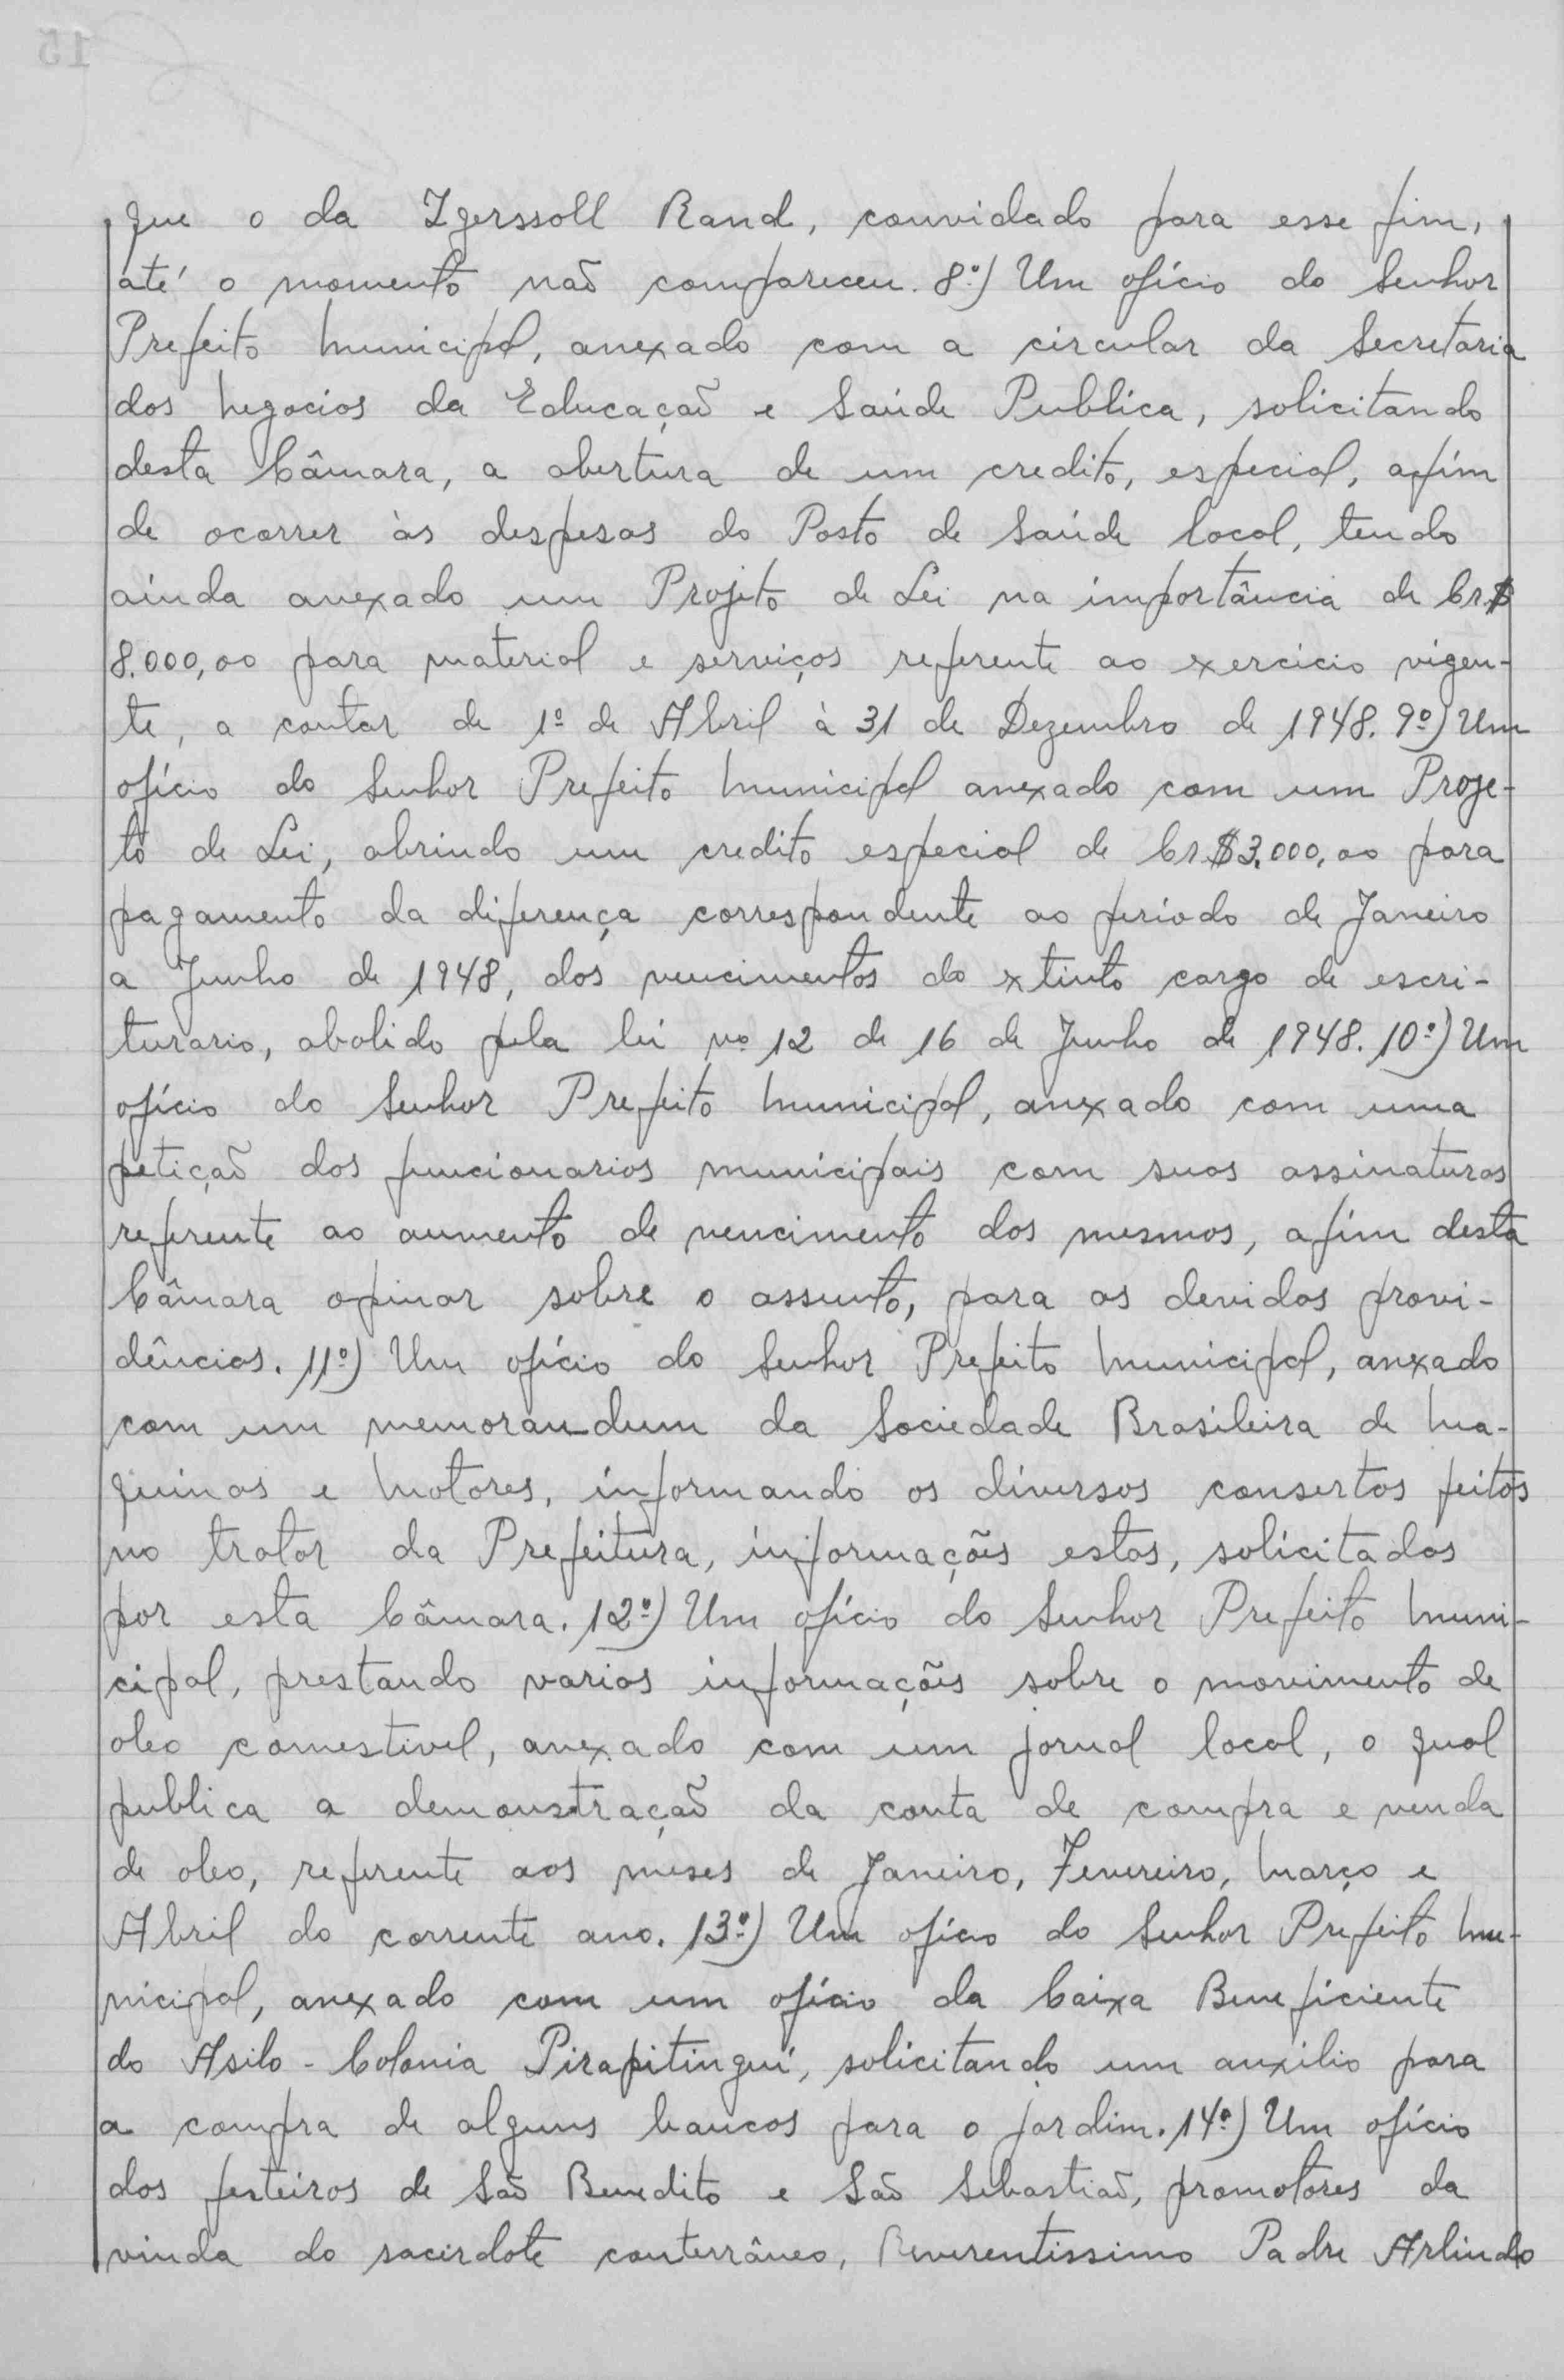 que o da Igerssoll Rand, convidado para esse fim,
até o momento não compareceu. 8º) Um ofício do Senhor
Prefeito Municipal, anexado com a circular da Secretaria
dos Negocios da Educação e Saúde Publica, solicitando
desta Câmara, a abertura de um credito, especial, afim
de ocorrer às despesas do Posto de Saúde local, tendo
ainda anexado um Projeto de Lei na importância de Cr$
8.000,00 para material e serviços referente ao exercício vigen-
te, a contar de 1º de Abril à 31 de Dezembro de 1948. 9º) Um
ofício do Senhor Prefeito Municipal anexado com um Proje-
to de Lei, abrindo um credito especial de Cr$3.000,00 para
pagamento da diferença correspondente ao período de Janeiro
a Junho de 1948, dos vencimentos do extinto cargo de escri-
turario, abolido pela lei nº 12 de 16 de Junho de 1948. 10º) Um
ofício do Senhor Prefeito Municipal, anexado com uma
petição dos funcionarios municipais com suas assinaturas
referente ao aumento de vencimento dos mesmos, afim desta
Câmara opinar sobre o assunto, para as devidas provi-
dências. 11º) Um ofício do Senhor Prefeito Municipal, anexado
com um memorandum da Sociedade Brasileira de Ma-
quinas e Motores, informando os diversos consertos feitos
no trator da Prefeitura, informações estas, solicitadas
por esta Câmara. 12º) Um ofício do Senhor Prefeito Muni-
cipal, prestando varias informações sobre o movimento de
oleo comestivel, anexado com um jornal local, o qual
publica a demonstração da conta de compra e venda
de oleo, referente aos meses de Janeiro, Fevereiro, Março e
Abril do corrente ano. 13º) Um ofício do Senhor Prefeito Mu-
nicipal, anexado com um ofício da Caixa Beneficiente
do Asilo-Colonia Pirapitinguí, solicitando um auxílio para
a compra de alguns bancos para o jardim. 14º) Um ofício
dos festeiros de São Benedito e São Sebastião, promotores da
vinda do sacerdote conterrâneo, Reverentissimo Padre Arlindo